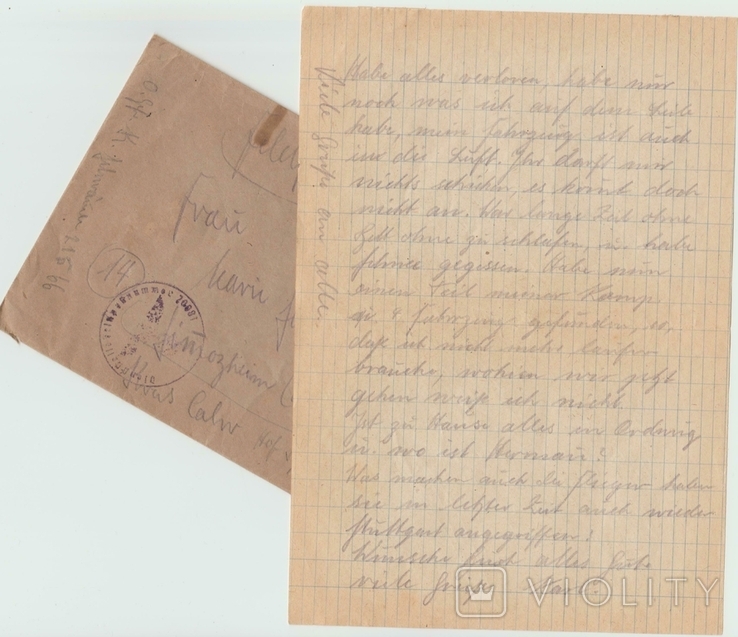 Habe alles verloren, habe nur
noch was ich auf dem Leibe
habe, mein Fahrzeug ist auch
in die Luft. Ihr dürft mir
nichts schicken, es kommt doch
nicht an. War lange Zeit ohne
Zelt ohne zu schlafen, u. habe
Schnee gegessen. Habe nun
einen Teil meiner Komp
gefunden, so,
daß ich nicht mehr laufen
brauche, wohin wir jetzt
gehen weiß ich nicht.
Ist zu Hause alles in Ordnung
u. wo ist Herman?
Was machen auch die Flieger haben
sie in letzter Zeit auch wieder
Stuttgart angegriffen?
Wünsche Euch alles Gute
viele Grüße Karl.
Viele Grüße an alle.
Frau
Marie
Simozheim
Kreis Calw
14
VIOLITY